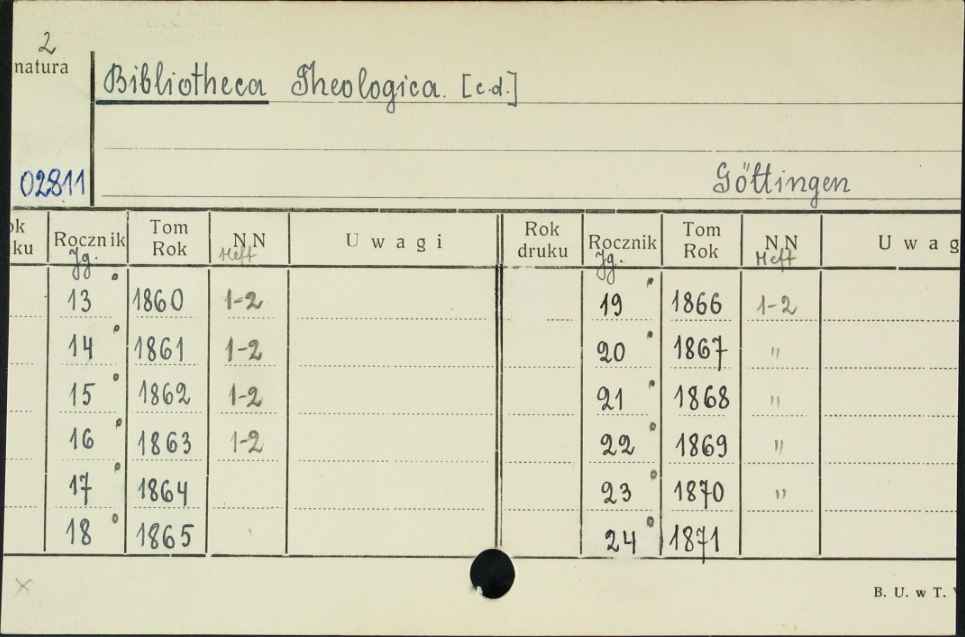 2
natura
Bibliotheca Theologica. [c.d.]
02811
Göttingen
ok
ku
Rocznik
Jg.
Tom
Rok
NN
Heft
Uwagi
Rok
druku
Rocznik
Jg.
Tom
Rok
NN
Heft
Uwag
13 1860 1-2 19 1866 1-2
14 1861 1-2 20 1867 "
15 1862 1-2 21 1868 "
16 1863 1-2 22 1869 "
17 1864 23 1870 "
18 1865 24 1871
x
B. U. w T.